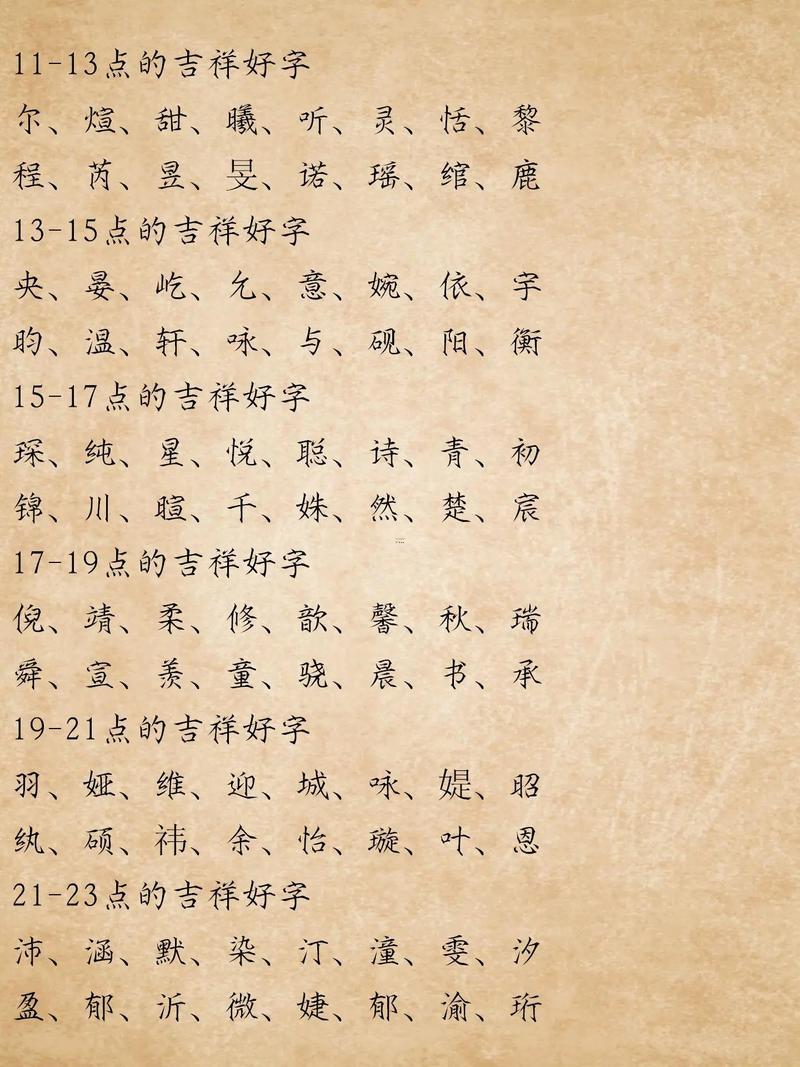 11-13点的吉祥好字
尔、煊、甜、曦、听、灵、恬、黎
程、芮、昱、旻、诺、瑶、绾、鹿
13-15点的吉祥好字
央、晏、屹、允、意、婉、依、宇
昀、温、轩、咏、与、砚、阳、衡
15-17点的吉祥好字
琛、纯、星、悦、聪、诗、青、初
锦、川、暄、千、姝、然、楚、宸
17-19点的吉祥好字
倪、靖、柔、修、歆、馨、秋、瑞
舜、宣、羡、童、骁、晨、书、承
19-21点的吉祥好字
羽、娅、维、迎、城、咏、媞、昭
纨、硕、祎、余、怡、璇、叶、恩
21-23点的吉祥好字
沛、涵、默、染、汀、潼、雯、汐
盈、郁、沂、微、婕、郁、渝、珩